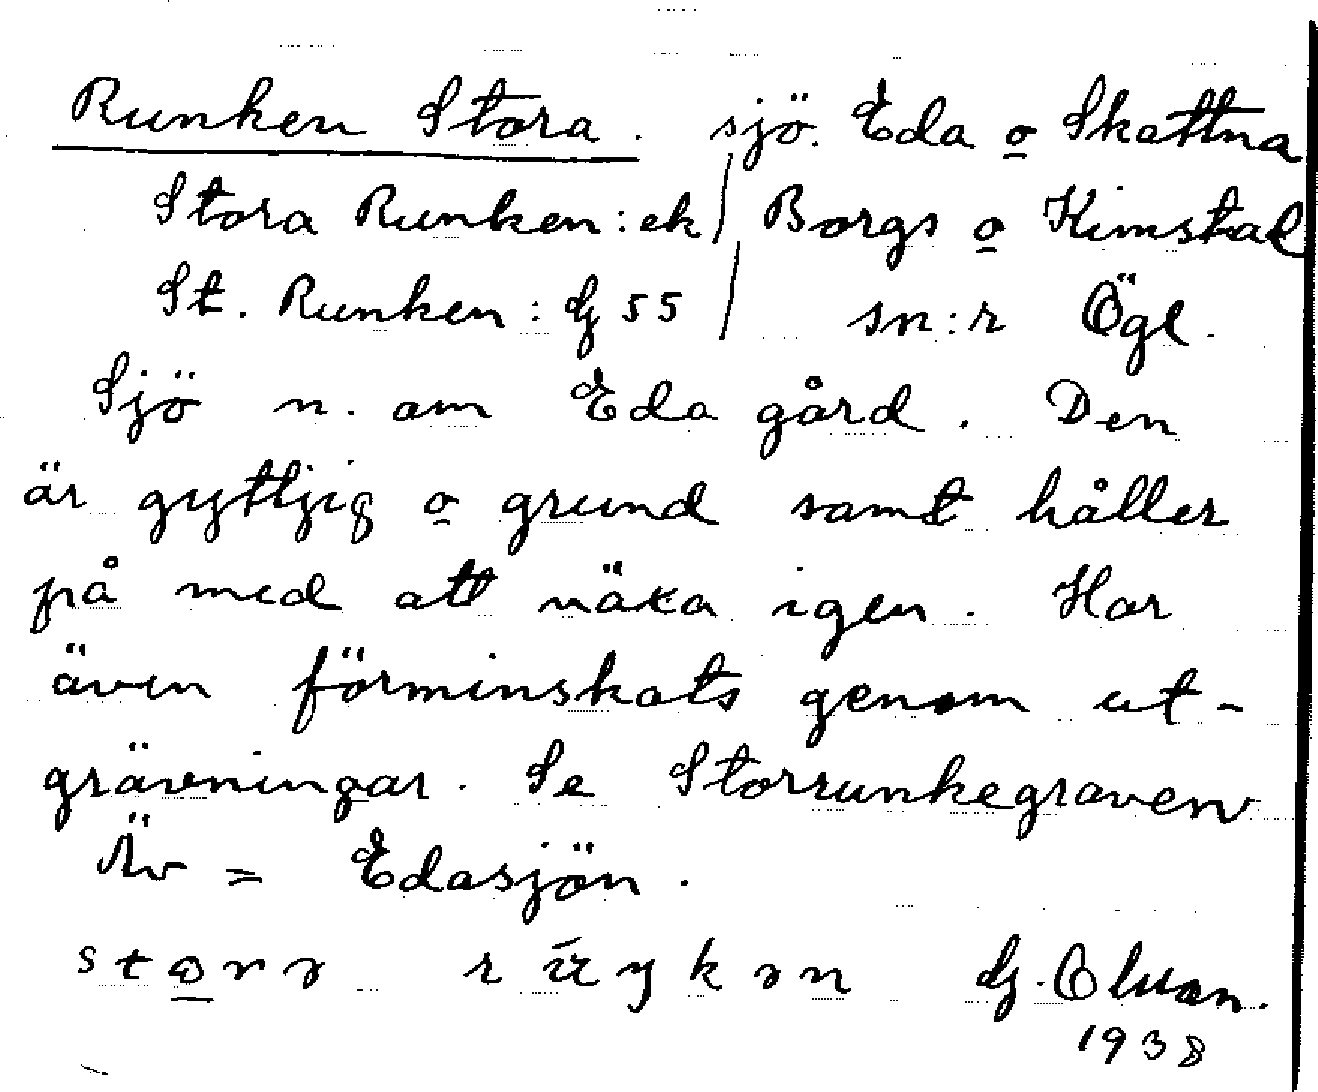 Runken Stora. sjö. Eda o Skattna
Stora Runken: ek / Borgs o Kimstad
St. Runken: Gj 55 / sn:r Ögl.
Sjö n. om Eda gård. Den
är gyttjig o grund samt håller
på med att växa igen. Har
även förminskats genom ut-
grävningar. Se Storrunkegraven
Äv = Edasjön.
1938